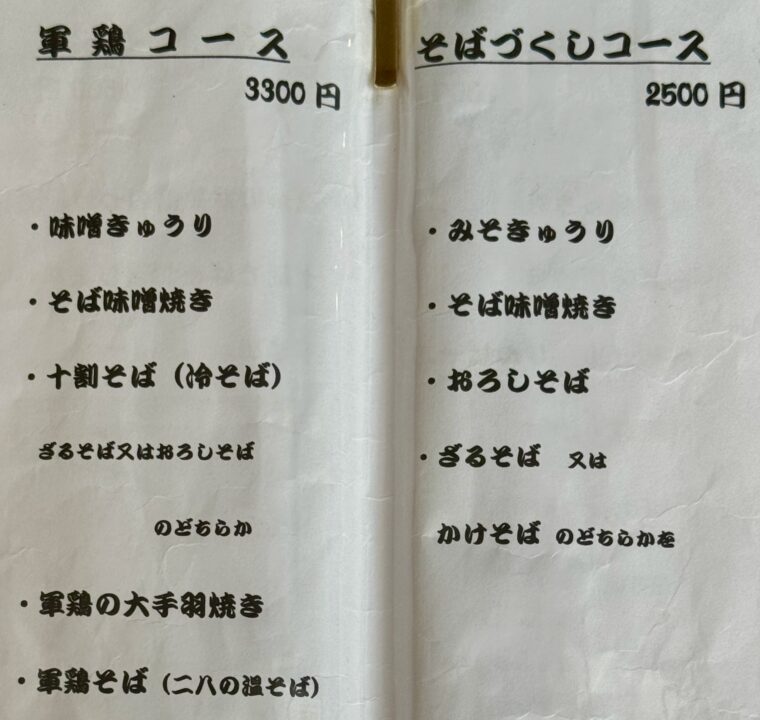 軍鶏コース
3300 円
・味噌きゅうり
・そば味噌焼き
・十割そば（冷そば）
ざるそば又はおろしそば
のどちらか
・軍鶏の大手羽焼き
・軍鶏そば（二八の温そば）
そばづくしコース
2500 円
・みそきゅうり
・そば味噌焼き
・おろしそば
・ざるそば 又は
かけそば のどちらかを